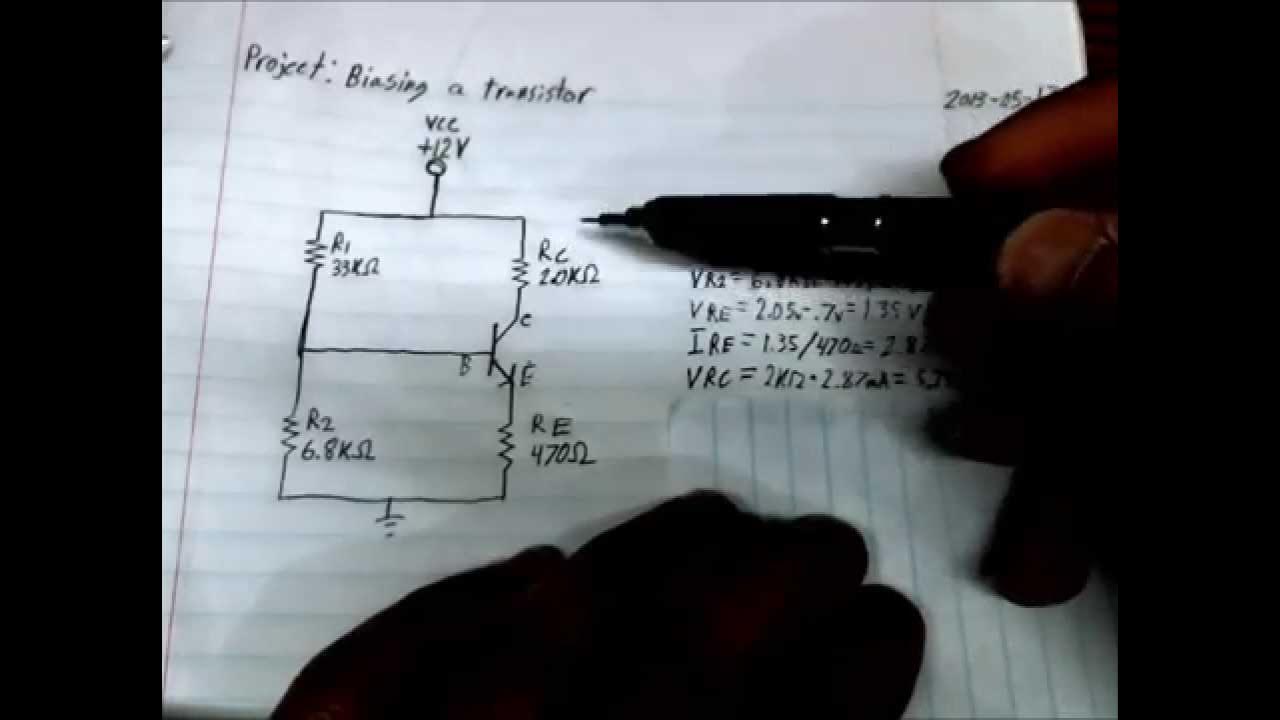 Project: Biasing a transistor
2013-05-
VCC
+12V
R1
33KΩ
RC
2.0KΩ
C
B
E
R2
6.8KΩ
RE
470Ω
VR2=
VRE = 2.05v-.7v=1.35V
IRE = 1.35/470Ω=
VRC = 2KΩ·2.87mA=